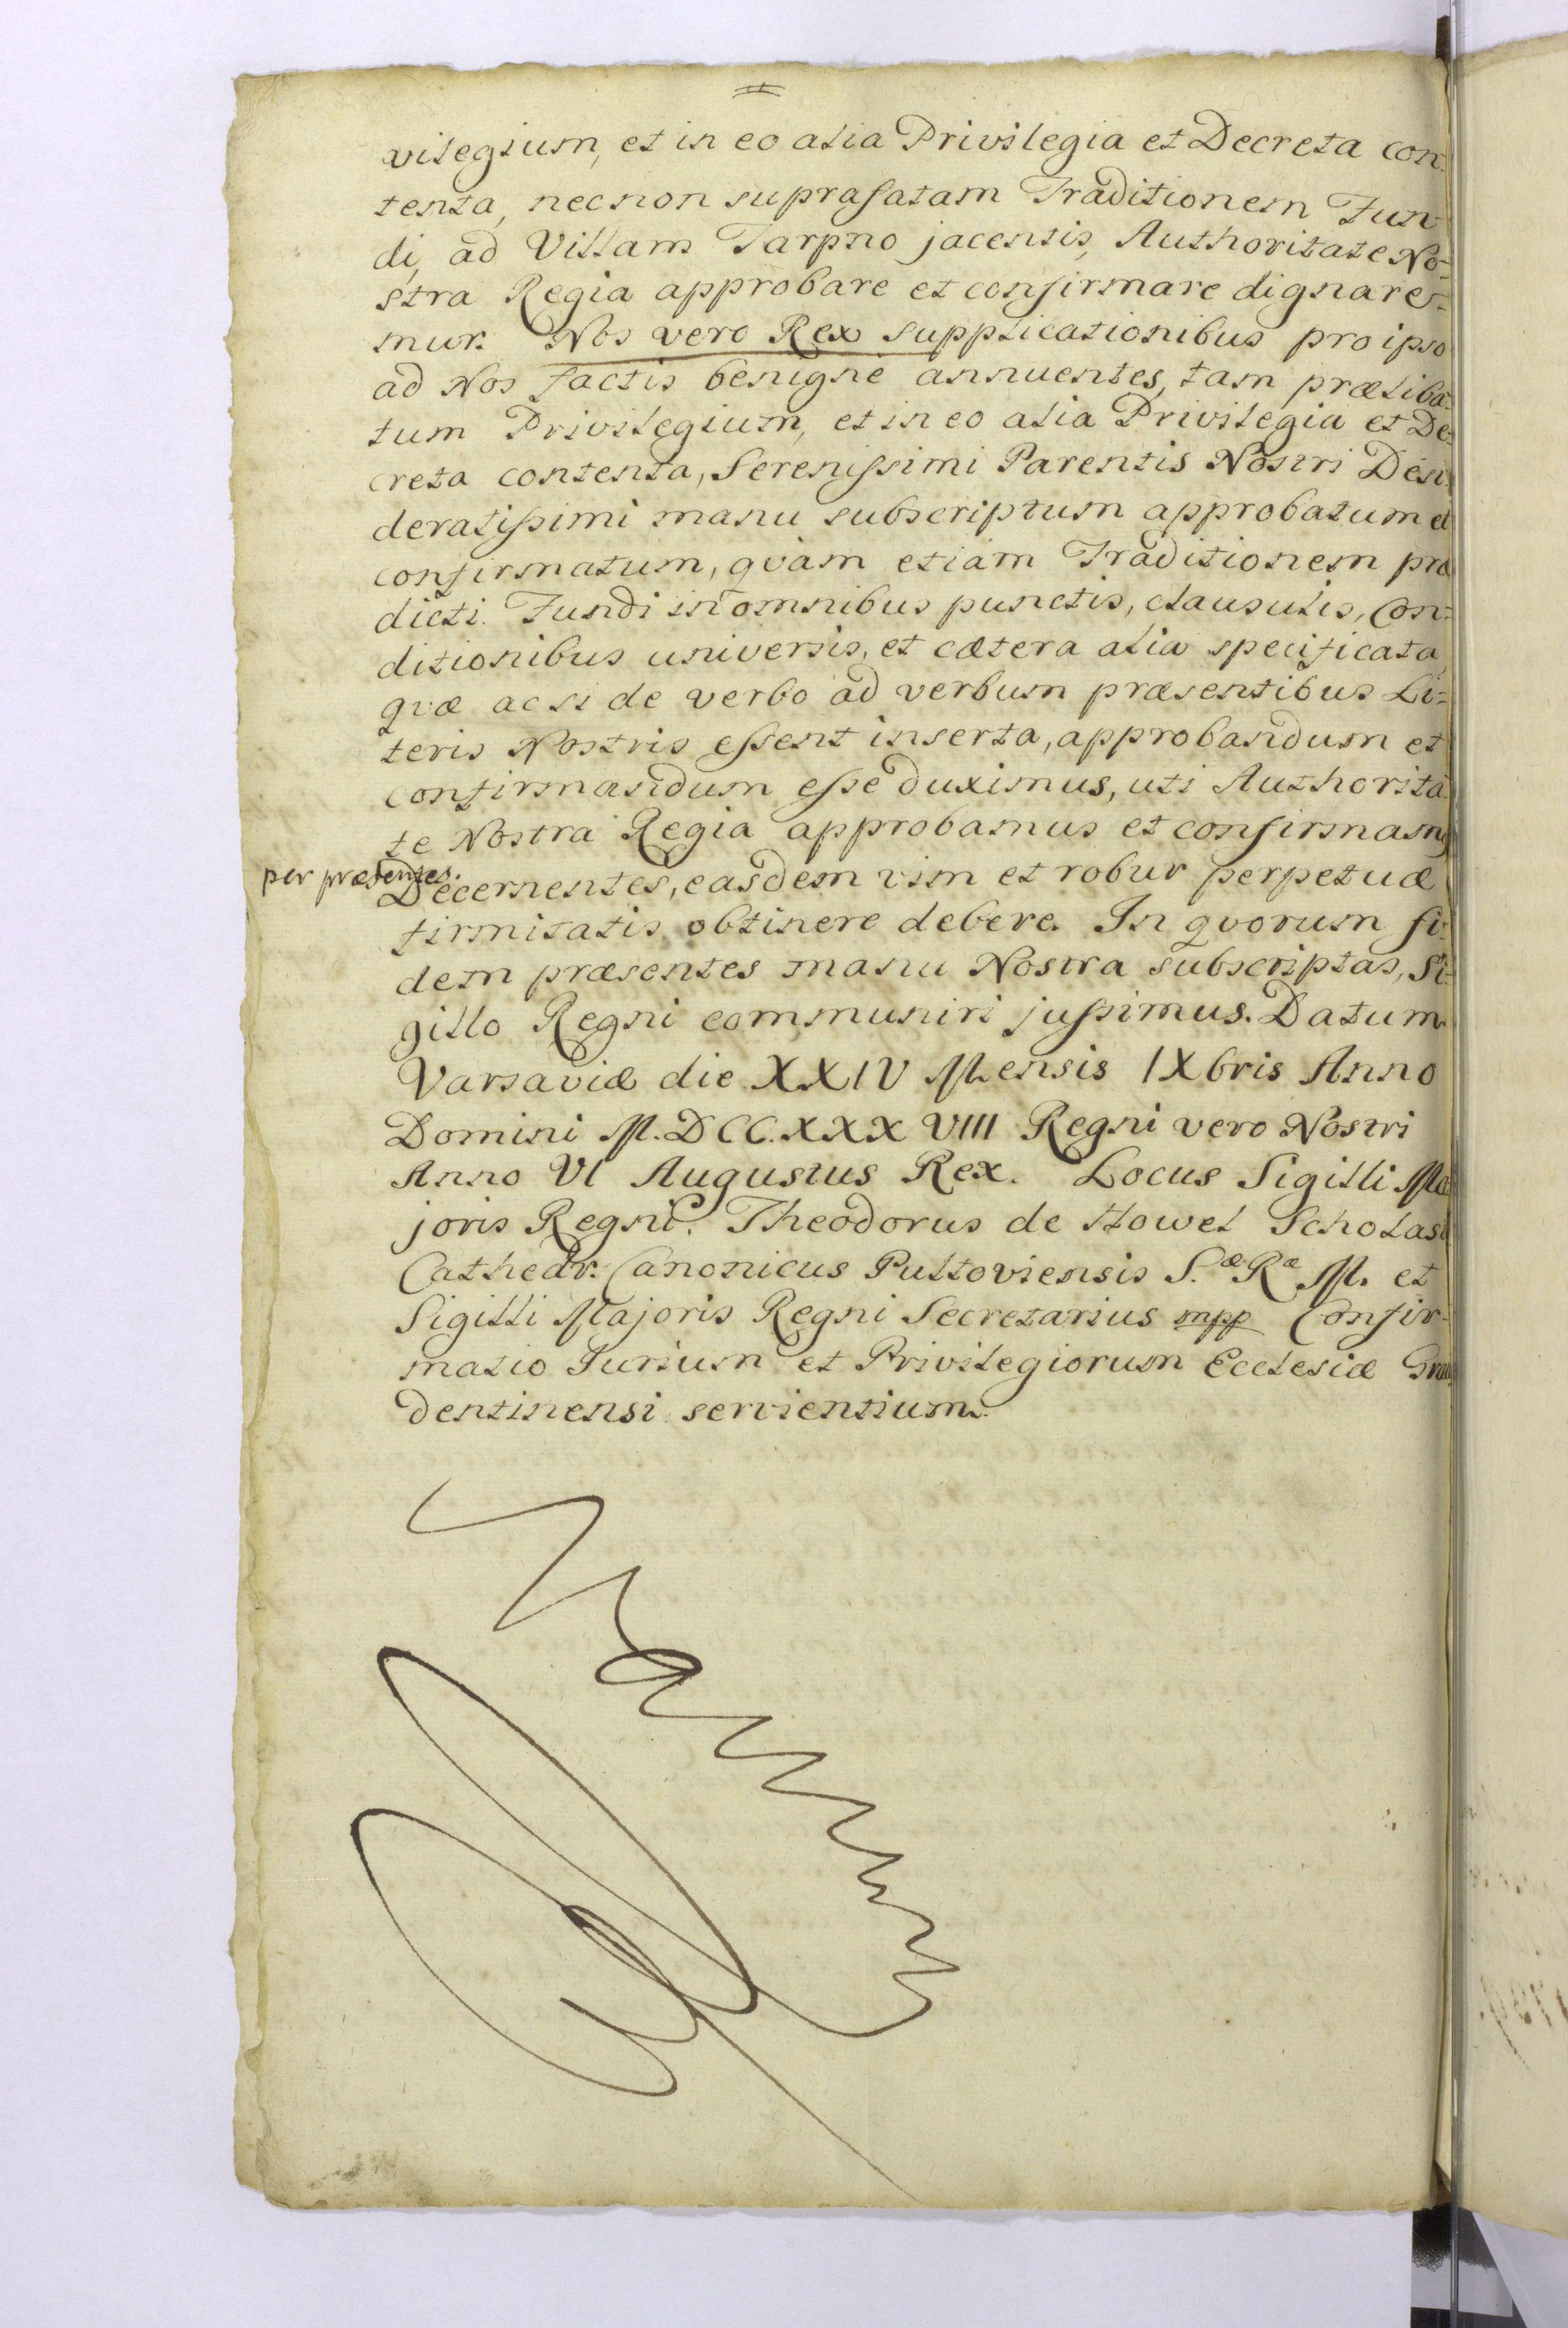 vilegium, et in eo alia Privilegia et Decreta con-
tenta, necnon suprafatam Traditionem Fun-
di, ad Villam Tarpno jacentis, Authoritate No-
stra Regia approbare et confirmare dignare-
mur. Nos vero Rex supplicationibus pro ipso
ad Nos factis benigne annuentes, tam præliba-
tum Privilegium, et in eo alia Privilegia et De-
creta contenta, Serenissimi Parentis Nostri Desi-
deratissimi manu subscriptum approbatum et
confirmatum, qvàm etiam Traditionem præ
dicti Fundi in omnibus punctis, clausulis, Con-
ditionibus universis, et cætera alia specificata,
qvæ ac si de verbo ad verbum præsentibus Li-
teris Nostris essent inserta, approbandum et
confirmandum esse duximus, uti Authorita-
te Nostra Regia approbamus et confirmamus
per præsentes.
Decernentes, easdem vim et robur perpetuæ
firmitatis obtinere debere. In qvorum fi-
dem præsentes manu Nostra subscriptas, Si-
gillo Regni communiri jussimus. Datum
Varsaviæ die XXIV Mensis IXbris Anno
Domini M.DCC.XXXVIII Regni vero Nostri
Anno VI Augustus Rex. Locus Sigilli Ma
joris Regni. Theodorus de Howel Scholas
Cathedr. Canonicus Pultoviensis S.æ Ræ M. et
Sigilli Majoris Regni Secretarius mpp Confir-
matio Jurium et Privilegiorum Ecclesiæ Grau
dentinensi servientium.